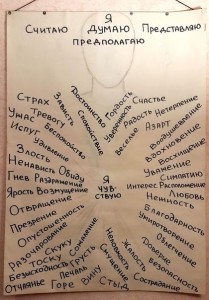 Я
Считаю Думаю Представляю
предполагаю
Страх
Тревогу
Ужас
Беспокойство
Испуг
Удивление
Зависть
Достоинство
Спокойствие
Гордость
Уверенность
Счастье
Радость
Нетерпение
Веселье
Азарт
Воодушевление
Вдохновение
Восхищение
Уважение
Симпатию
Интерес Расположение
Любовь
Нежность
Благодарность
Умиротворение
Облегчение
Доверие
Безопасность
Сострадание
Злость
Ненависть Обиду
Гнев Раздражение
Ярость Возмущение
Отвращение
Презрение
Опустошенность
Разочарование
Скуку
Тоску
Безысходность
Грусть
Отчаяние
Печаль
Горе
Вину
Стыд
Смущение
Неловкость
Я
чув-
ствую